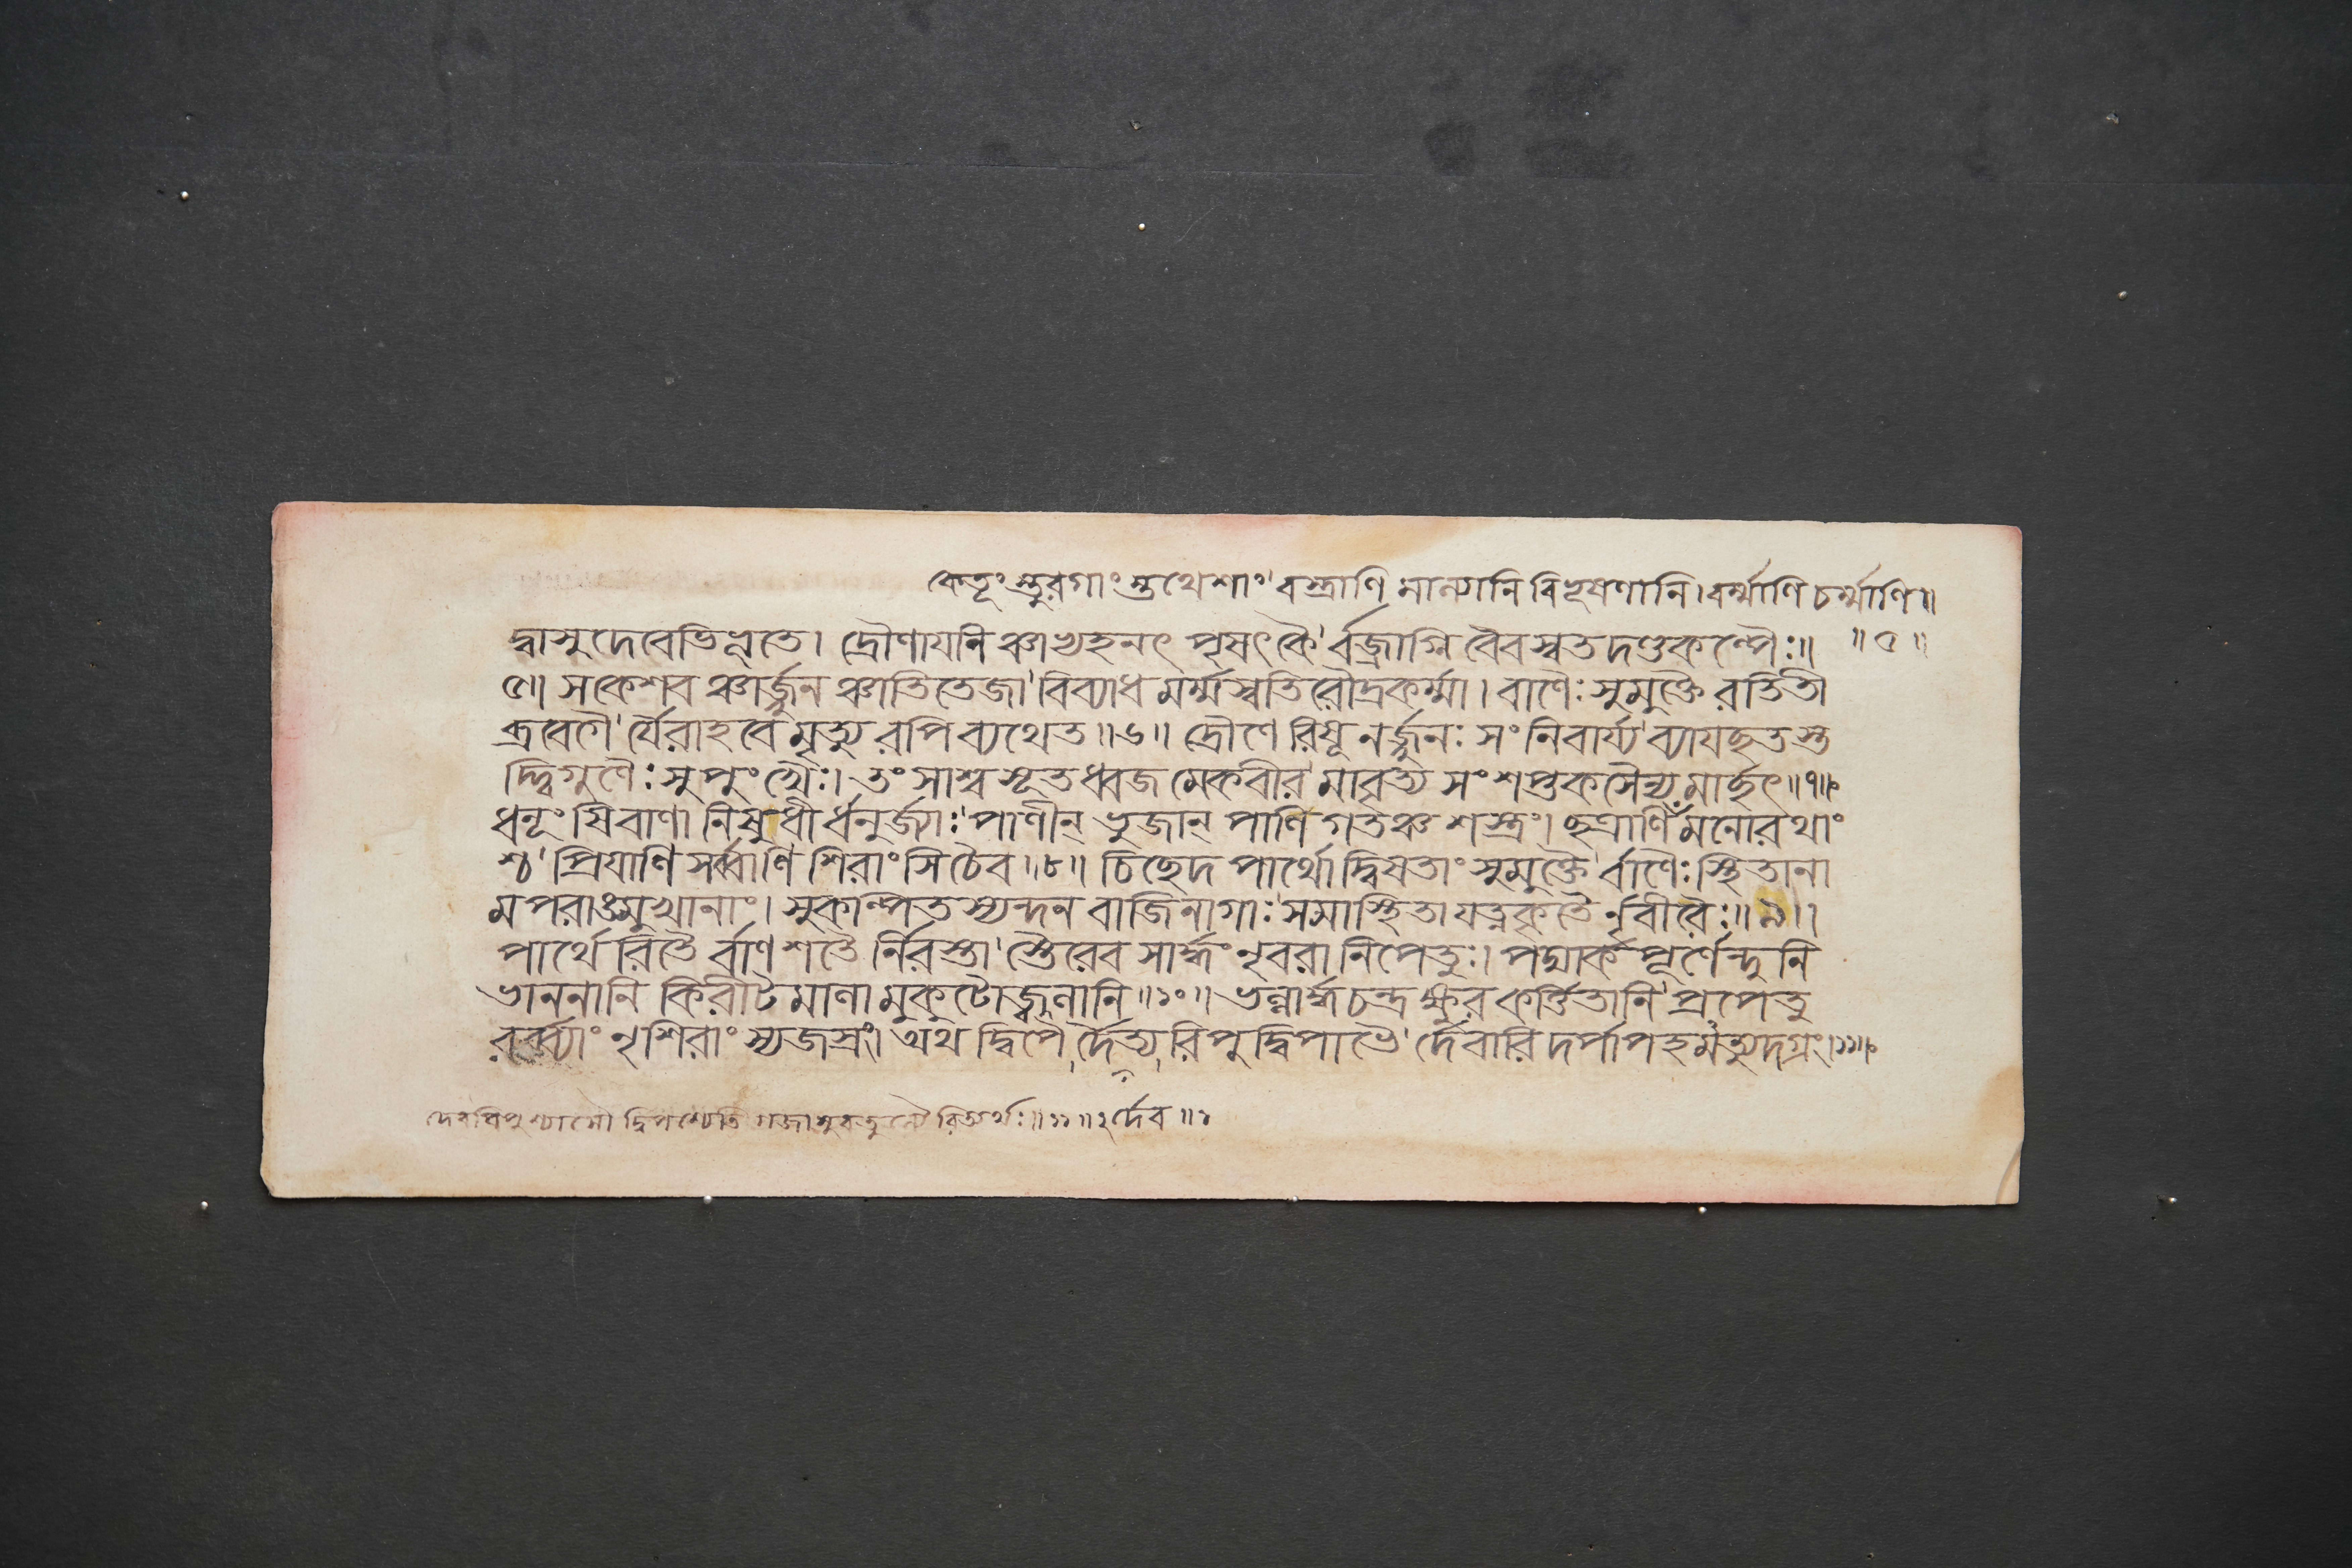 কেতূংস্তুরগাংস্তথেশাং' বস্ত্রাণি মাল্যানি বিভূষণানি। বর্ম্মাণি চর্ম্মাণি॥
দ্বাসুদেবেভিন্নতে। দ্রৌণাযনিঞ্চাভ্যহনৎ পৃষৎকৈ'র্বজ্রাগ্নি বৈবস্বতদণ্ডকল্পৈঃ॥ ॥৫॥
৫॥ সকেশবঞ্চার্জ্জুনঞ্চাতিতেজা'বিব্যাধ মর্ম্মস্বতিরৌদ্রকর্ম্মা। বাণৈঃ সুমুক্তৈ রতিতী
ব্রবেগৈ'র্যৈরাহবে মৃত্যুরপি ব্যথেত॥৬॥ দ্রৌণেরিষূনর্জ্জুনঃ সংনিবার্য্য'ব্যাযছতস্ত
দ্দ্বিগুণৈঃ সুপুংখৈঃ। তং সাশ্বসূতধ্বজমেকবীর'মাবৃত্য সংশপ্তকসৈন্যমার্ছৎ॥৭॥
ধনূংষি বাণানিষুধীর্ধনুর্জ্যাঃ'পাণীন্ ভুজান্ পাণিগতঞ্চ শস্ত্রং। ছত্রাণি মনোরথাং
শ্চ'প্রিযাণি সর্ব্বাণি শিরাংসি চৈব॥৮॥ চিছেদ পার্থো দ্বিষতাং সুমুক্তৈ'র্বাণৈঃ স্থিতানা
মপরাঙমুখানাং। সুকল্পিতস্যন্দনবাজিনাগাঃ'সমাস্থিতা যত্নকৃতৈর্নৃবীরৈঃ॥৯॥
পার্থেরিতৈর্বাণশতৈর্নিরস্তা'স্তৈরেব সার্দ্ধং নৃবরা নিপেতুঃ। পদ্মার্ক পূর্ণেন্দুনি
ভাননানি কিরীটমালা মুকুটোজ্জ্বলানি॥১০॥ ভল্লার্দ্ধচন্দ্রক্ষুরকর্ত্তিতানি'প্রপেতু
রুর্ব্ব্যাং নৃশিরাংস্যজস্রং। অথ দ্বিপৈর্দৈত্যরিপুদ্বিপাভৈ'র্দেবারিদর্পাপহমত্যুদগ্রং॥১১॥
দ্বিপশ্চেতি গজাসুরতুল্যৈরিত্যর্থঃ॥১১॥ ২র্দেব॥১